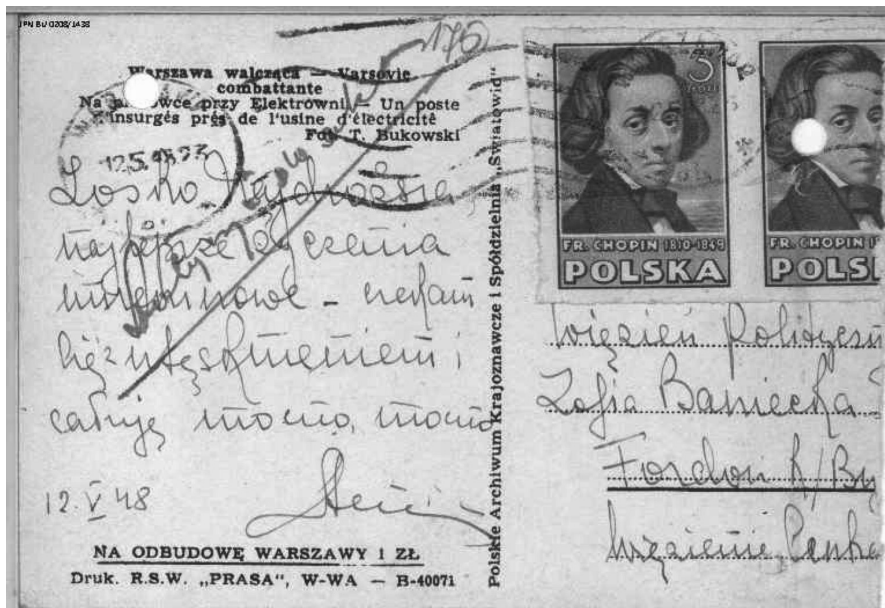 IPN BU 0208/1438
176
Warszawa walcząca — Varsovie
combattante
Na placówce przy Elektrowni — Un poste
d'insurgés près de l'usine d'électricité
Fot. T. Bukowski
12.5.48
Zośko Najdroższa
najlepsze życzenia
imieninowe – czekam
Cię z utęsknieniem i
całuję mocno, mocno
12.V.48
NA ODBUDOWĘ WARSZAWY 1 ZŁ
Druk. R.S.W. „PRASA", W-WA — B-40071
Polskie Archiwum Krajoznawcze i Spółdzielnia „Światowid"
3
FR. CHOPIN 1810-1849
POLSKA
FR. CHOPIN
POLS
Więzień Polityczn
Zofia Baniecka
Fordon k/By
Więzienie